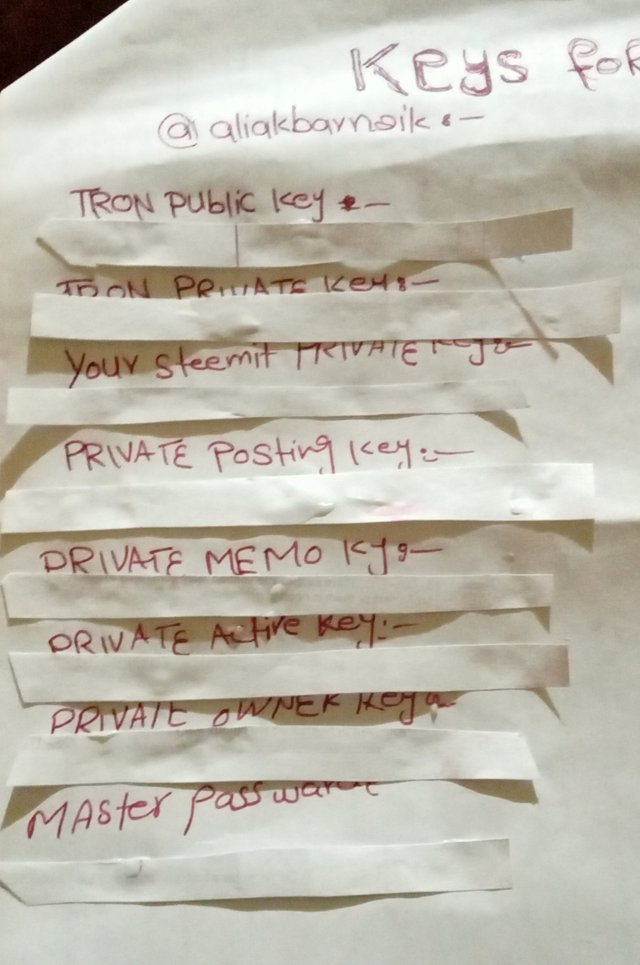 Keys for
@aliakbarnaik :-
TRON Public Key :-
TRON PRIVATE Keys :-
Your steemit PRIVATE Keys :-
PRIVATE Posting Key :-
PRIVATE MEMO Ky :-
PRIVATE Active Key :-
PRIVATE OWNER Key :-
MASter Password